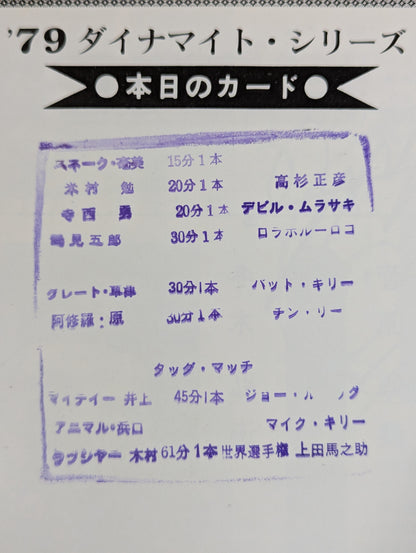 '79 ダイナマイト・シリーズ
●本日のカード●
スネーク・奄美 15分1本
木村 勉 20分1本 高杉正彦
寺西 勇 20分1本 デビル・ムラサキ
鶴見五郎 30分1本
グレート・草津 30分1本 パット・キリー
阿修羅・原 30分1本 チン・リー
タッグ・マッチ
マイティー 井上 45分1本 ジョー・
アニマル・浜口 マイク・キリー
ラッシャー 木村 61分1本 世界選手権 上田馬之助